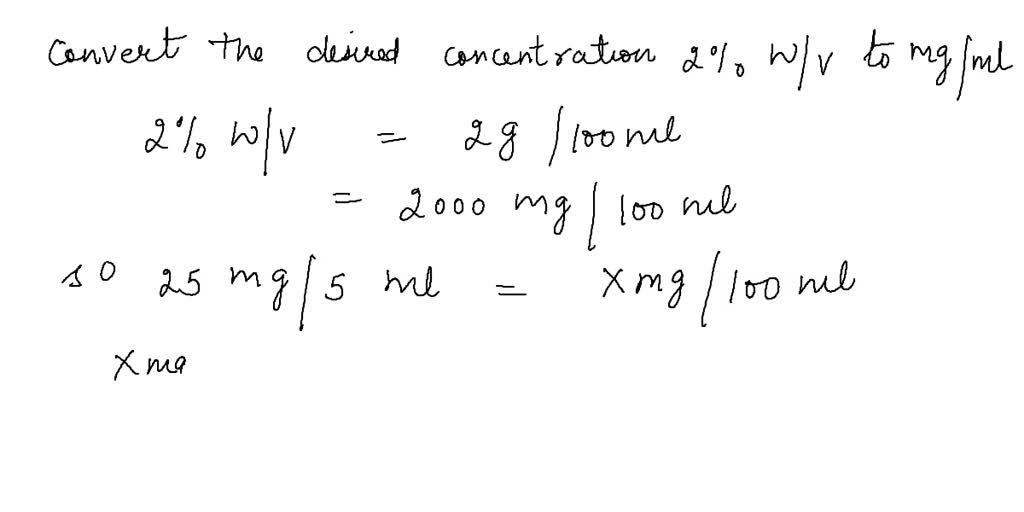 Convert the desired concentration 2% W/V to mg/ml
2% W/V = 2g / 100 ml
= 2000 mg / 100 ml
so 25 mg/5 ml = X mg / 100 ml
X mg